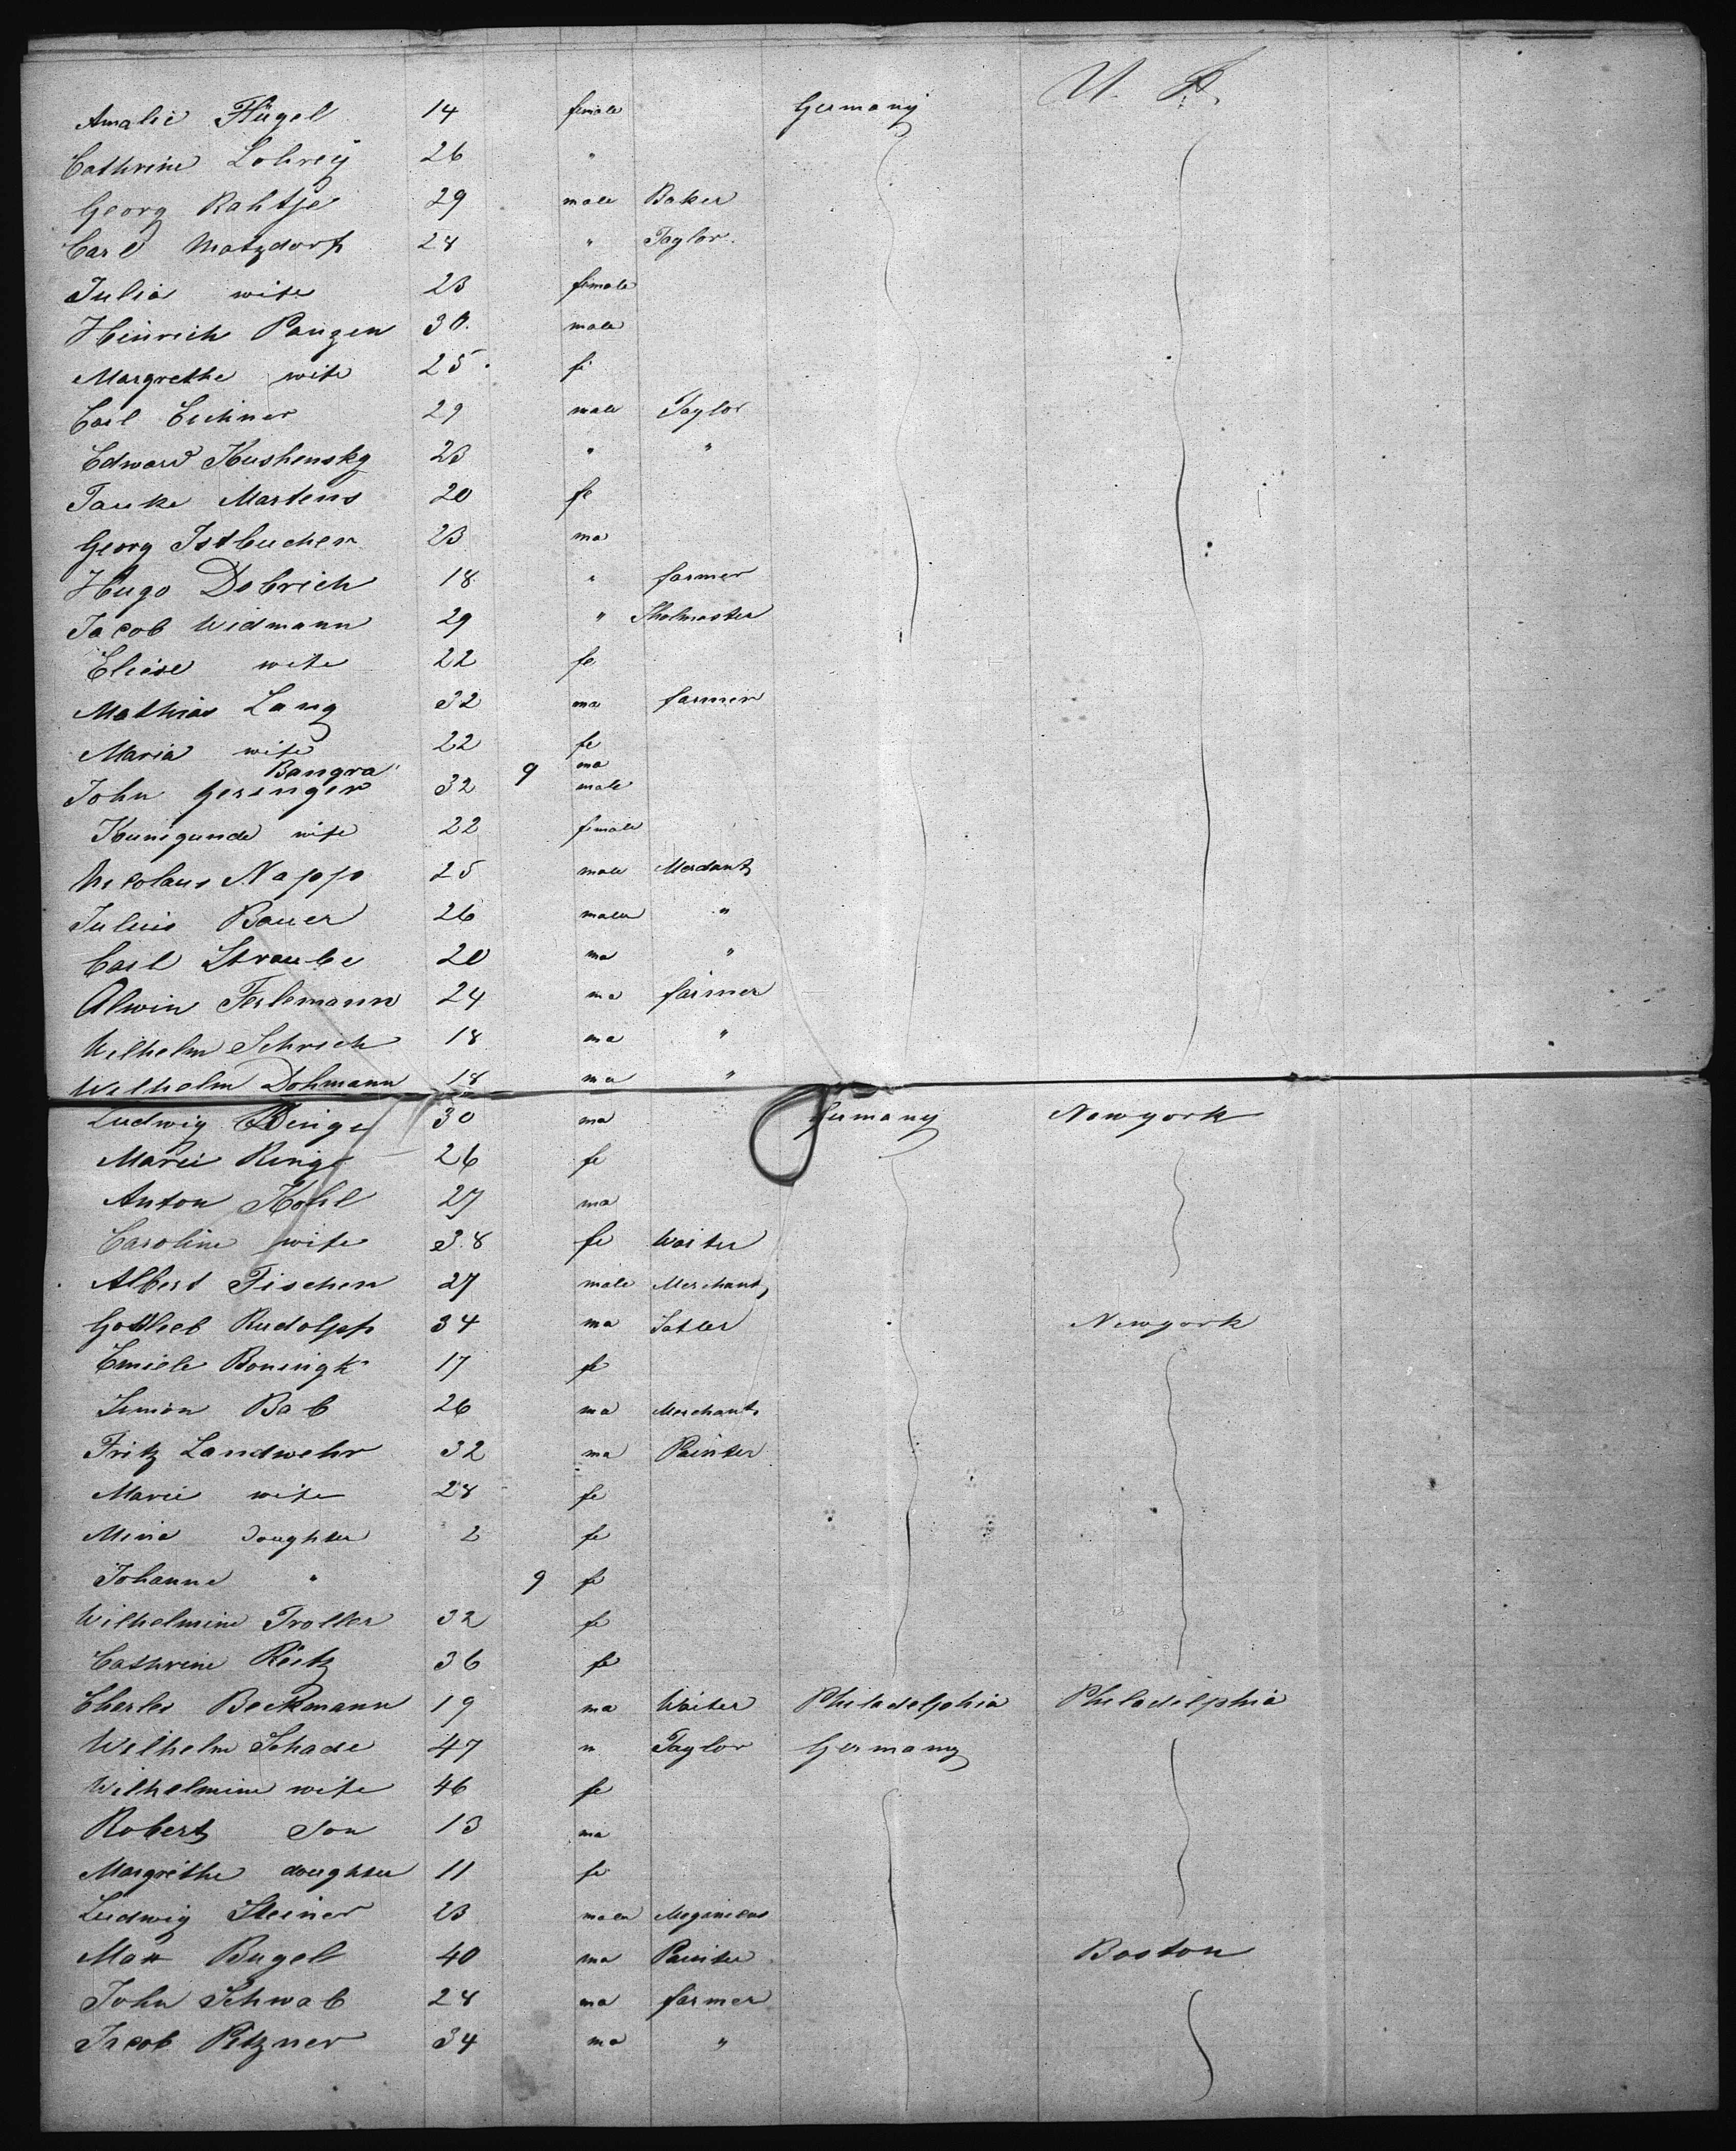 Amalie Flügel 14 female Germany U. S.
Cathrine Lohrey 26 "
Georg Rahtje 29 male Baker
Carl Matzdorf 28 " Taylor.
Julia wife 23 female
Heinrich Pangen 30. male
Margrethe wife 25. fe
Carl Eichner 29 male Taylor
Edward Kushensky 23 " "
Tauke Martens 20 fe
Georg Istbucher 23 ma
Hugo Dobrich 18 " farmer
Jacob Widmann 29 " Sholmaster
Eliese wife 22 fe
Mathias Lang 32 ma farmer
Maria wife 22 fe
Bangra 9 ma
John Gesinger 32 male
Kunigunde wife 22 female
Nicolaus Napp 25 male
Julius Bauer 26 male "
Carl Straube 20 ma "
Alwin Ferlemann 24 ma farmer
Wilhelm Schrich 18 ma "
Wilhelm Dohmann 18 ma "
Ludwig Ringe 30 ma Germany Newyork
Marie Ringe 26 fe
Anton Kohl 27 ma
Caroline wife 38 fe Waiter
Albert Fischer 27 male Merchant
Gottlieb Rudolph 34 ma Satler Newyork
Emiele Boningk 17 fe
Simon Bab 26 ma Merchant
Fritz Landwehr 32 ma Painter
Marie wife 28 fe
Mina Doughter 2 fe
Johanne " 9 fe
Wilhelmine Troller 32 fe
Cathrine Reitz 36 fe
Charles Beckmann 19 ma Waiter Philadelphia Philadelphia
Wilhelm Schade 47 " Taylor Germany
Wilhelmine wife 46 fe
Robert Son 13 ma
Margrethe doughter 11 fe
Ludwig Steiner 23 male
Max Bugel 40 ma Painter Boston
John Schwab 28 ma farmer
Jacob Pitzner 34 ma "